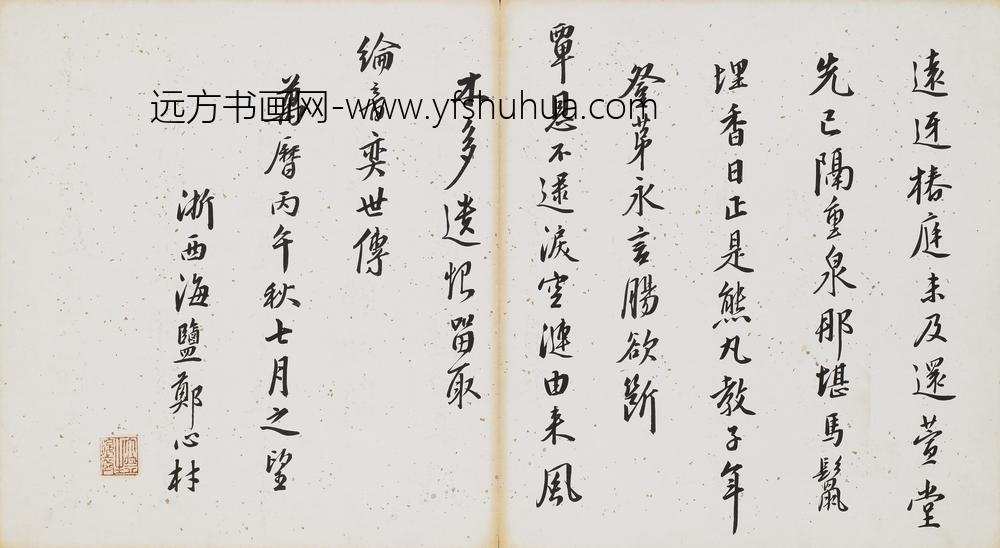 遠迓椿庭未及還萱堂
先已隔重泉那堪馬鬣
埋香日正是熊丸教子年
祭第永言腸欲斷
覃恩不逮淚空漣由来風
木多遺恨留取
綸音奕世傳
萬曆丙午秋七月之望
浙西海鹽鄭心材
远方书画网-www.yfshuhua.com